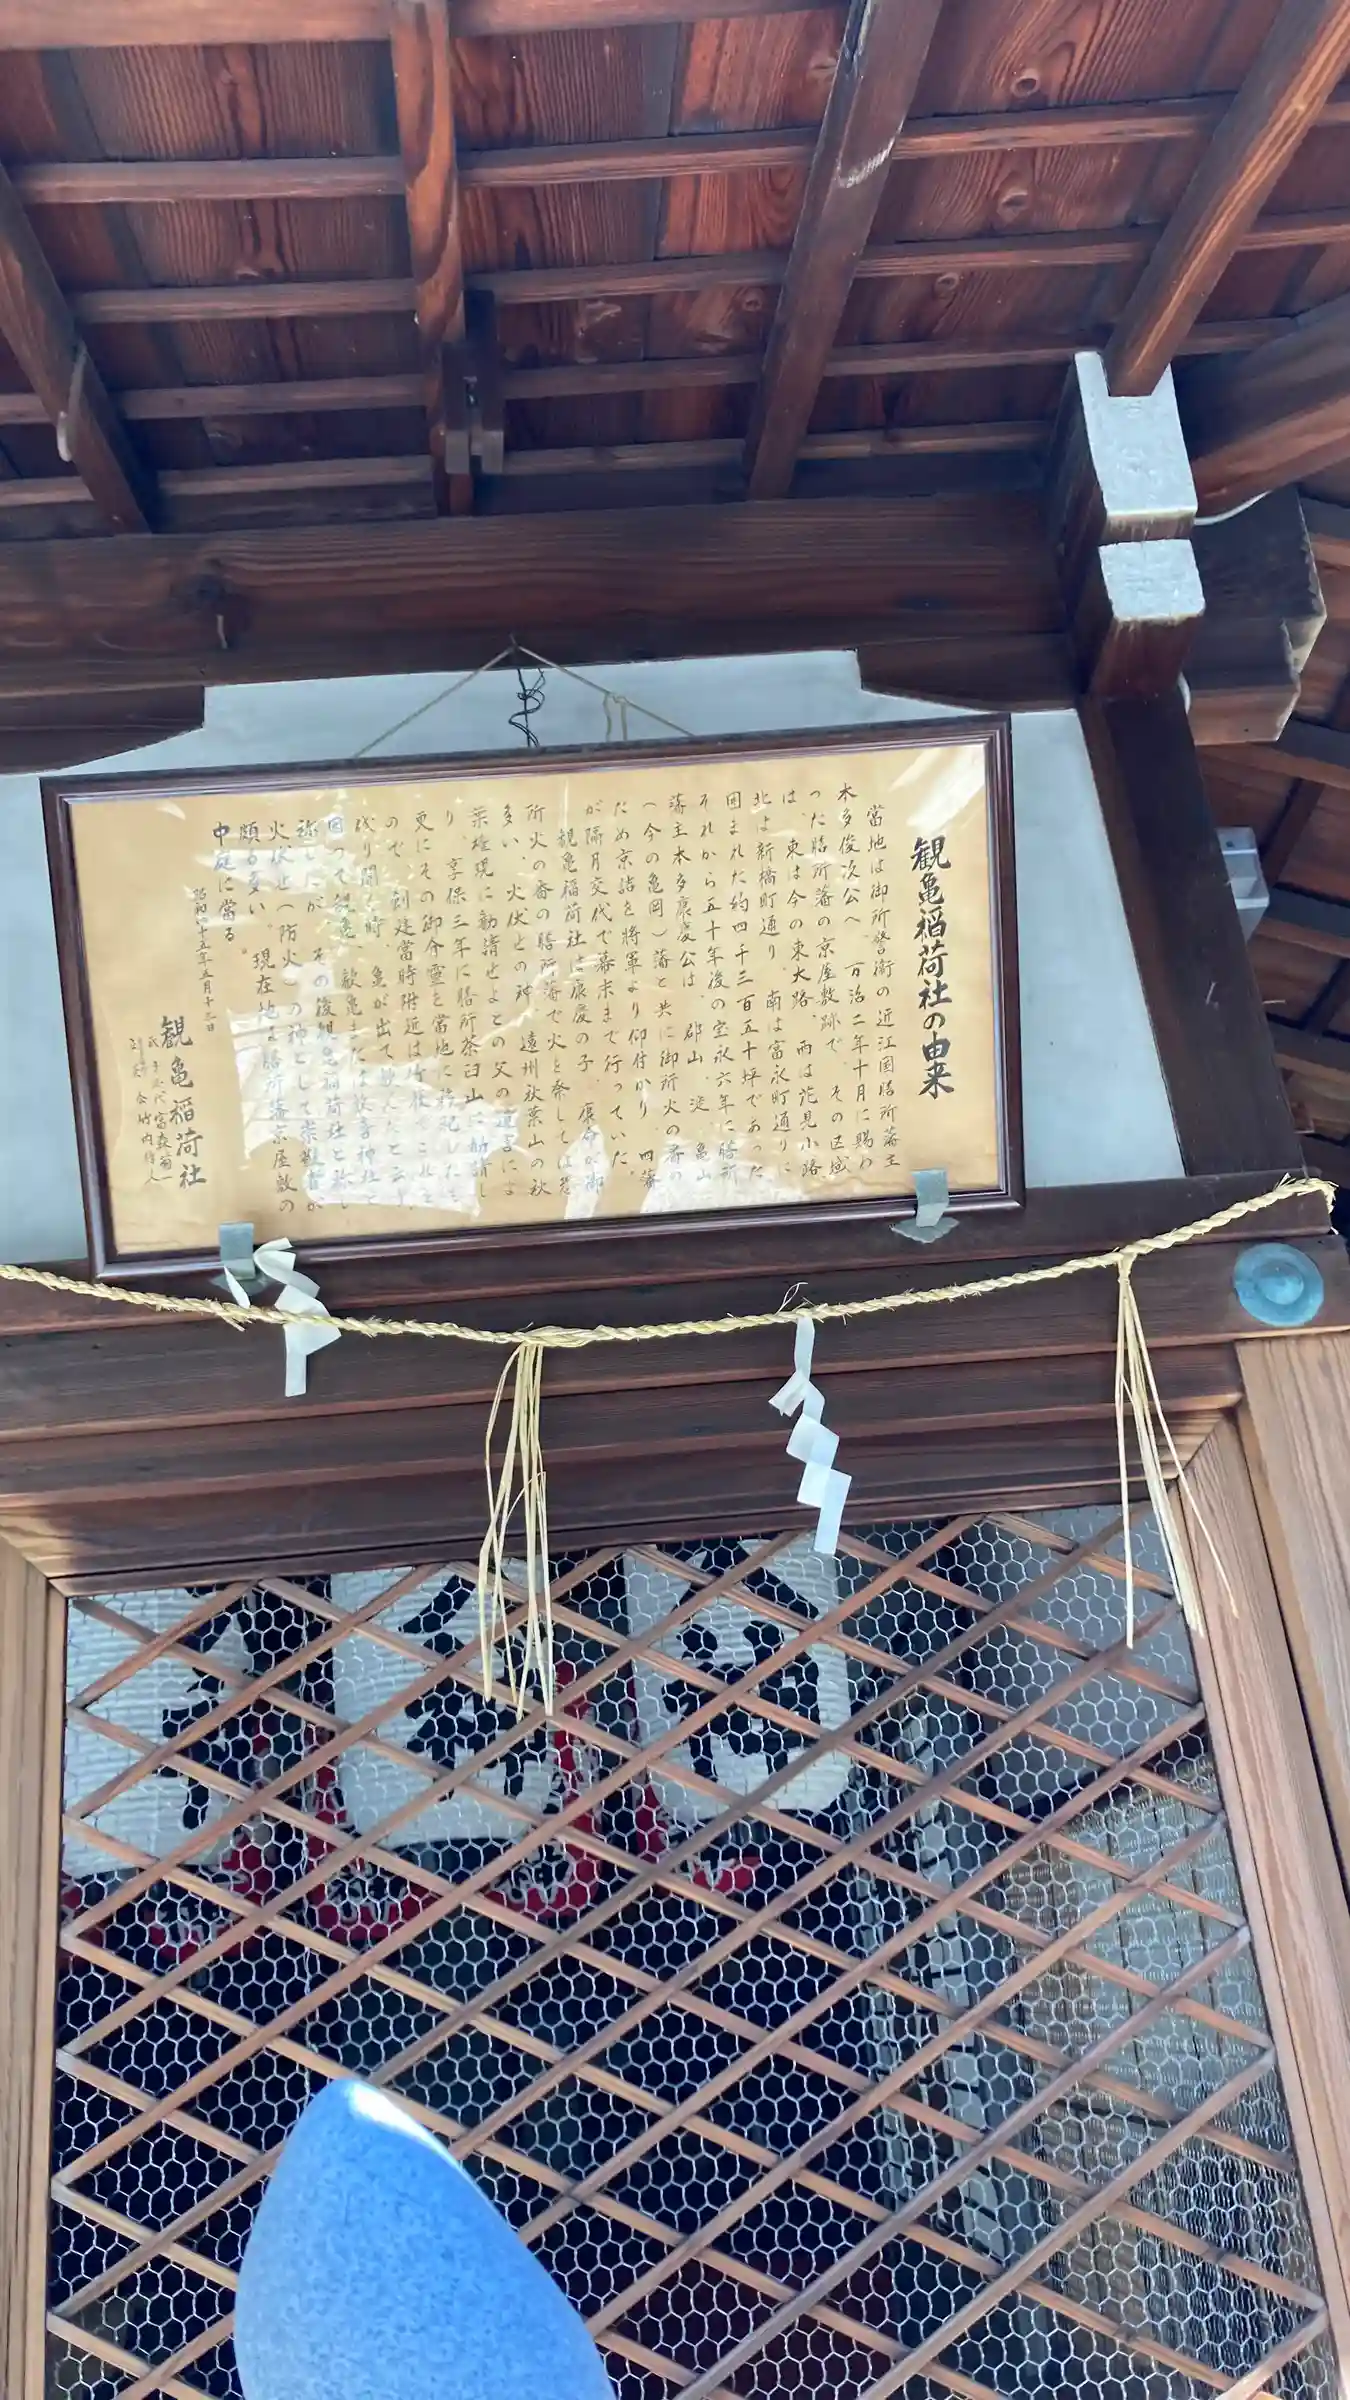 観亀稲荷社の由来
当地は御所警衛の近江国膳所藩主
本多俊次公へ、万治二年十月に賜わ
った膳所藩の京屋敷跡で、その区域
は、東は今の東大路、西は花見小路、
北は新橋町通り、南は富永町通りに
囲まれた約四千三百五十坪であった
それから五十年後の宝永六年に膳所
藩主本多康慶公は、郡山、淀、亀山
（今の亀岡）藩と共に御所火の番の
ため京詰を将軍より仰付かり、四藩
が隔月交代で幕末まで行っていた。
観亀稲荷社は康慶の子、康命が御
所火の番の膳所藩で火を祭しては恐
多い、火伏せの神、遠州秋葉山の秋
葉権現に勧請せよとの父の遺言によ
り、享保三年に膳所茶臼山に勧請し
更にその御分霊を当地に
ので、創建当時附近は
残り聞く時、亀が出て
因って観亀、歓亀または歓喜神社と
称したが、その後観亀稲荷社と称し
火伏せ（防火）の神として崇敬者が
頗る多い。現在地は膳所藩京屋敷の
中庭に當る
昭和四十五年五月十三日
観亀稲荷社